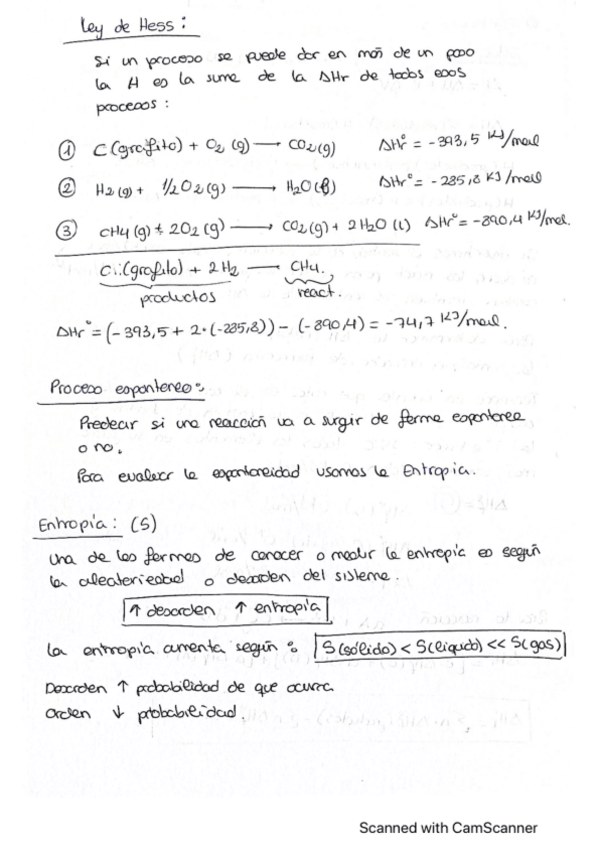 Ley de Hess:
Si un proceso se puede dar en más de un paso
la H es la suma de la ΔHr de todos esos
procesos:
① C(grafito) + O2 (g) → CO2(g) ΔHr° = -393,5 KJ/mol
② H2(g) + 1/2 O2(g) → H2O(l) ΔHr° = -285,8 KJ/mol
③ CH4(g) + 2O2(g) → CO2(g) + 2H2O(l) ΔHr° = -890,4 KJ/mol.
C(grafito) + 2H2 → CH4.
productos react.
ΔHr° = (-393,5 + 2·(-285,8)) - (-890,4) = -74,7 KJ/mol.
Proceso espontaneo:
Predecir si una reacción va a surgir de forma espontanea
o no.
Para evaluar la espontaneidad usamos la Entropía.
Entropía: (S)
Una de las formas de conocer o medir la entropía es según
la aleatoriedad o desorden del sistema.
↑ desorden ↑ entropía
La entropía aumenta según: S(sólido) < S(líquido) << S(gas)
Desorden ↑ probabilidad de que ocurra
Orden ↓ probabilidad.
Scanned with CamScanner